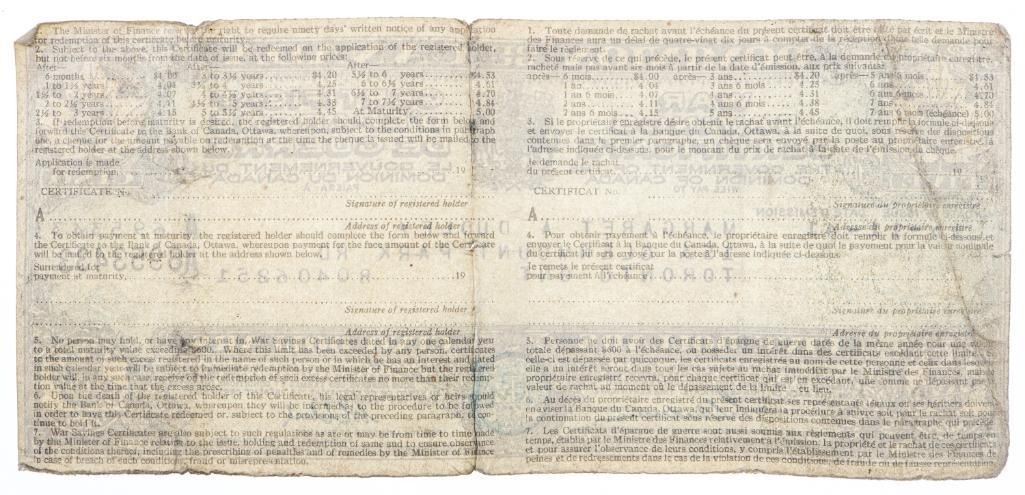 1. The Minister of Finance reserves the right to require ninety days' written notice of any application
for redemption of this certificate before maturity.
2. Subject to the above, this Certificate will be redeemed on the application of the registered holder,
but not before six months from the date of issue, at the following prices:
After— After— After—
6 months $4.00 3 to 3½ years $4.20 5½ to 6 years $4.53
1 to 1½ years 4.04 3½ to 4 years 4.25 6 to 6½ years 4.61
1½ to 2 years 4.07 4 to 4½ years 4.31 6½ to 7 years 4.70
2 to 2½ years 4.11 4½ to 5 years 4.38 7 to 7½ years 4.84
2½ to 3 years 4.15 5 to 5½ years 4.45 At Maturity 5.00
3. If redemption before maturity is desired, the registered holder should complete the form below and
forward this Certificate to the Bank of Canada, Ottawa, whereupon, subject to the conditions in paragraph
one, a cheque for the amount payable on redemption at the time the cheque is issued will be mailed to the
registered holder at the address shown below.
Application is made
for redemption 19
CERTIFICATE No.
Signature of registered holder
A
Address of registered holder
4. To obtain payment at maturity, the registered holder should complete the form below and forward
the Certificate to the Bank of Canada, Ottawa, whereupon payment for the face amount of the Certificate
will be mailed to the registered holder at the address shown below.
Surrendered for
payment at maturity 19
Signature of registered holder
Address of registered holder
5. No person may hold, or have an interest in, War Savings Certificates dated in any one calendar year
to a total maturity value exceeding $600. Where this limit has been exceeded by any person, certificates
to the amount of such excess registered in the name of such person or in which he has an interest and dated
in such calendar year will be subject to immediate redemption by the Minister of Finance but the registered
holder will in any such case receive on the redemption of such excess certificates no more than their redemp-
tion value at the time that the excess arose.
6. Upon the death of the registered holder of this Certificate, his legal representatives or heirs should
notify the Bank of Canada, Ottawa, whereupon they will be informed as to the procedure to be followed
in order to have this Certificate redeemed or, subject to the provisions of the preceding paragraph, to con-
tinue to hold it.
7. War Savings Certificates are also subject to such regulations as are or may be from time to time made
by the Minister of Finance relating to the issue, holding and redemption of same and to ensure observance
of the conditions thereof, including the prescribing of penalties and of remedies by the Minister of Finance
in case of breach of such conditions, fraud or misrepresentation.
1. Toute demande de rachat avant l'échéance du présent certificat doit être faite par écrit et le Ministre
des Finances aura un délai de quatre-vingt dix jours à compter de la réception d'une telle demande pour
faire le règlement.
2. Sous réserve de ce qui précède, le présent certificat peut être, à la demande du propriétaire enregistré,
racheté mais pas avant six mois à partir de la date d'émission, aux prix suivants:
après—6 mois $4.00 après—3 ans $4.20 après—5 ans 6 mois $4.53
1 an 4.04 3 ans 6 mois 4.25 6 ans 4.61
1 an 6 mois 4.07 4 ans 4.31 6 ans 6 mois 4.70
2 ans 4.11 4 ans 6 mois 4.38 7 ans 4.84
2 ans 6 mois 4.15 5 ans 4.45 7 ans 6 mois (échéance) 5.00
3. Si le propriétaire enregistré désire obtenir le rachat avant l'échéance, il doit remplir la formule ci-dessous
et envoyer le certificat à la Banque du Canada, Ottawa, à la suite de quoi, sous réserve des dispositions
contenues dans le premier paragraphe, un chèque sera envoyé par la poste au propriétaire enregistré, à
l'adresse indiquée ci-dessous, pour le montant du prix de rachat à la date de l'émission du chèque.
Je demande le rachat
du présent certificat 19
CERTIFICAT No.
Signature du propriétaire enregistré
A
Adresse du propriétaire enregistré
4. Pour obtenir payement à l'échéance, le propriétaire enregistré doit remplir la formule ci-dessous et
envoyer le Certificat à la Banque du Canada, Ottawa, à la suite de quoi le payement pour la valeur nominale
du certificat lui sera envoyé par la poste à l'adresse indiquée ci-dessous.
Je remets le présent certificat
pour payement à l'échéance
Signature du propriétaire enregistré
Adresse du propriétaire enregistré
5. Personne ne doit avoir des Certificats d'épargne de guerre datés de la même année pour une valeur
totale dépassant $600 à l'échéance, ou posséder un intérêt dans des certificats excédant cette limite. Si
celle-ci est dépassée par quiconque, les certificats enregistrés au nom de cette personne et ceux dans lesquels
elle a un intérêt seront dans tous les cas sujets au rachat immédiat par le Ministre des Finances, mais le
propriétaire enregistré recevra, pour chaque certificat qui est en excédant, une somme ne dépassant pas la
valeur de rachat au moment où le dépassement de la limite a eu lieu.
6. Au décès du propriétaire enregistré du présent certificat ses représentants légaux ou ses héritiers doivent
en aviser la Banque du Canada, Ottawa, qui leur indiquera la procédure à suivre soit pour le rachat soit pour
la continuation du présent certificat sous réserve des dispositions contenues dans le paragraphe qui précède.
7. Les Certificats d'épargne de guerre sont aussi soumis aux règlements qui peuvent être, de temps en
temps, établis par le Ministre des Finances relativement à l'émission, la propriété et le rachat de ces certificats
et pour assurer l'observance de leurs conditions, y compris l'établissement par le Ministre des Finances de
peines et de redressements dans le cas de la violation de ces conditions, de fraude ou de fausse représentation.